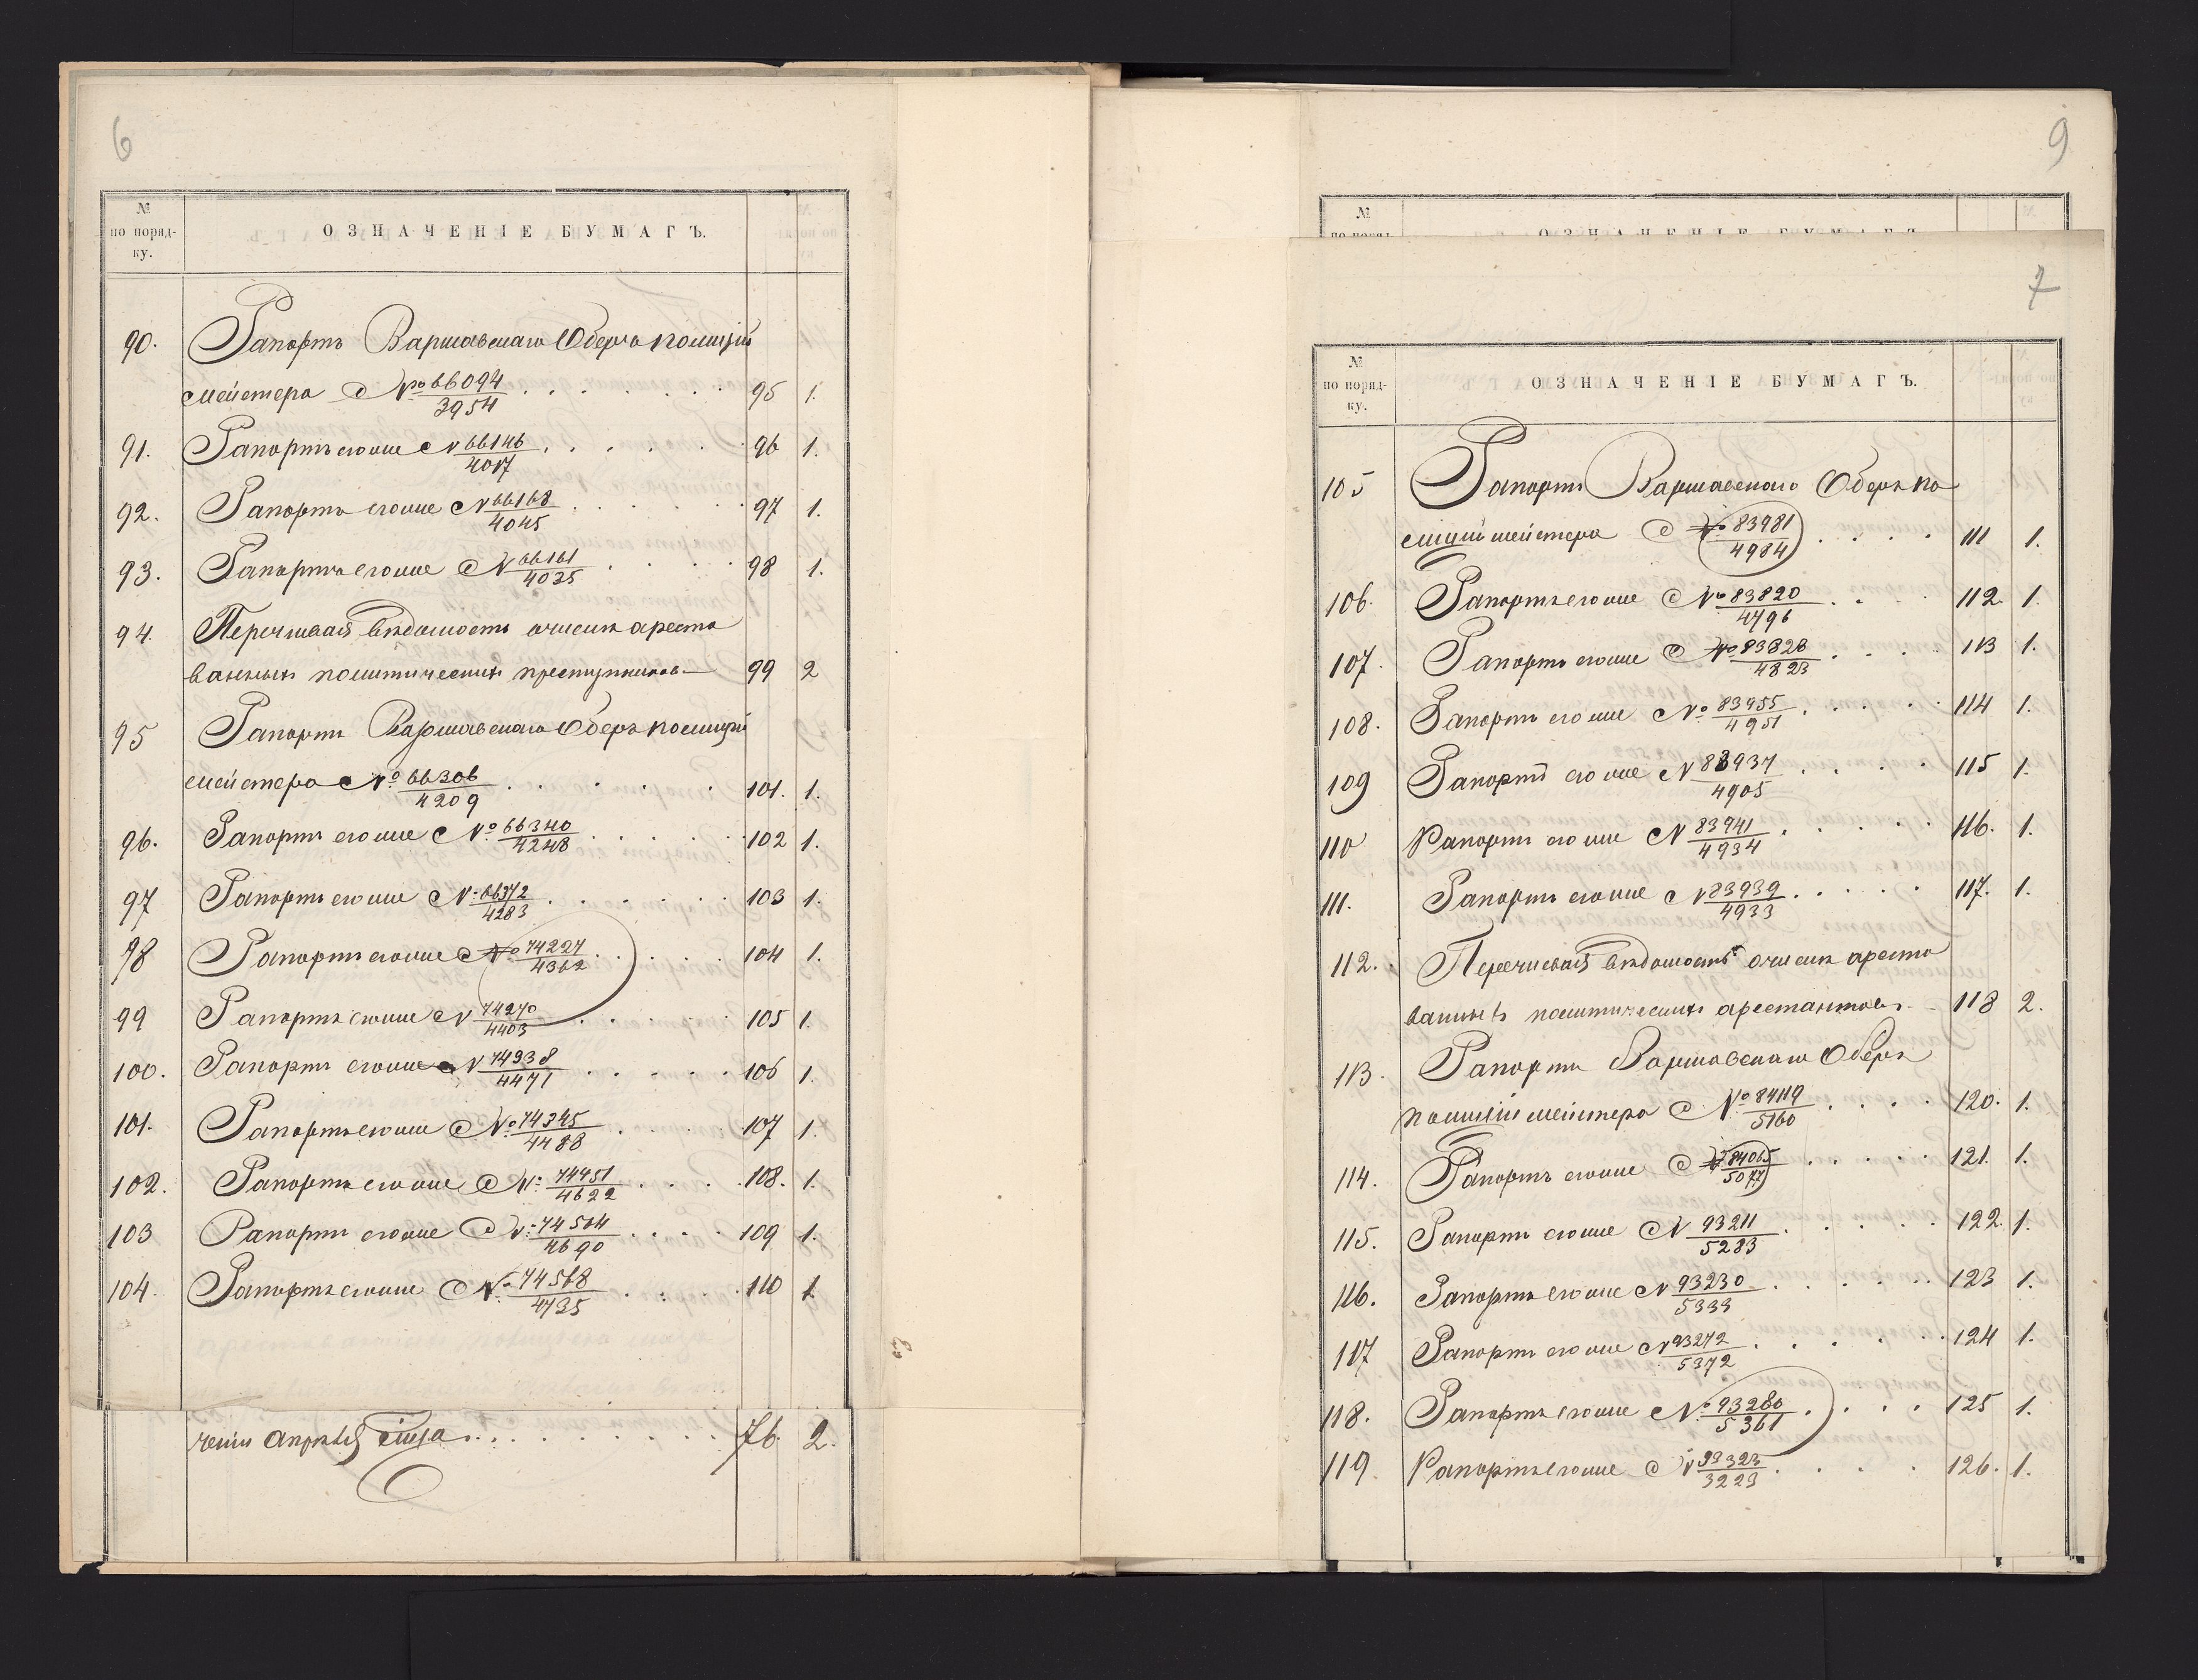 6
№
по поряд-
ку.
ОЗНАЧЕНІЕ БУМАГЪ.
90. Рапортъ Варшавскаго Оберъ полицій
мейстера № 66094/3954 . . . . . . 95 1.
91. Рапортъ егоже № 66146/4017 . . . . . 96 1.
92. Рапортъ егоже № 66168/4045 . . . . . 97 1.
93. Рапортъ егоже № 66161/4035 . . . . 98 1.
94. Перечневая вѣдомость о числѣ аресто
ванныхъ политическихъ преступниковъ — 99 2
95 Рапортъ Варшавскаго Оберъ полицій
мейстера № 66306/4209 . . . . . 101. 1.
96. Рапортъ егоже № 66340/4248 . . . . . 102 1.
97 Рапортъ егоже № 66372/4283 . . . . . 103 1.
98 Рапортъ егоже № 74227/4362 . . . . . 104 1.
99 Рапортъ егоже № 74270/4403 . . . . . 105 1.
100. Рапортъ егоже № 74338/4471 . . . . . 106 1.
101. Рапортъ егоже № 74345/4488 . . . . 107 1.
102. Рапортъ егоже № 74451/4622 . . . . 108. 1.
103 Рапортъ егоже № 74504/4690 . . . . 109 1.
104. Рапортъ егоже № 74568/4735 . . . . 110 1.
ченіи Апрѣля сица . . . . . . . . 76. 2.
9
№
по поряд-
ОЗНАЧЕНІЕ БУМАГЪ
7
№
по поряд-
ку.
ОЗНАЧЕНІЕ БУМАГЪ.
105 Рапортъ Варшавскаго Оберъ по
лиціймейстера № 83981/4984 . . . . 111 1.
106. Рапортъ егоже № 83820/4796 . . . . 112. 1.
107. Рапортъ егоже № 83828/4823 . . . . 113 1.
108. Рапортъ егоже № 83955/4951 . . . . . 114 1.
109 Рапортъ егоже № 83937/4905 . . . . 115 1.
110 Рапортъ егоже № 83941/4934 . . . . . 116. 1.
111. Рапортъ егоже № 83939/4933 . . . . . 117. 1.
112. Перечневая вѣдомость о числѣ аресто
ванныхъ политическихъ арестантовъ — 118 2.
113. Рапортъ Варшавскаго Оберъ
полиціймейстера № 84119/5160 . . . . 120. 1.
114. Рапортъ егоже № 84065/5077 . . . . . 121. 1.
115. Рапортъ егоже № 93211/5283 . . . . . 122. 1.
116. Рапортъ егоже № 93230/5333 . . . . . 123 1.
117 Рапортъ егоже № 93272/5372 . . . . . 124 1.
118. Рапортъ егоже № 93280/5361 . . . . 125 1.
119. Рапортъ егоже № 93323/3223 . . . . 126. 1.